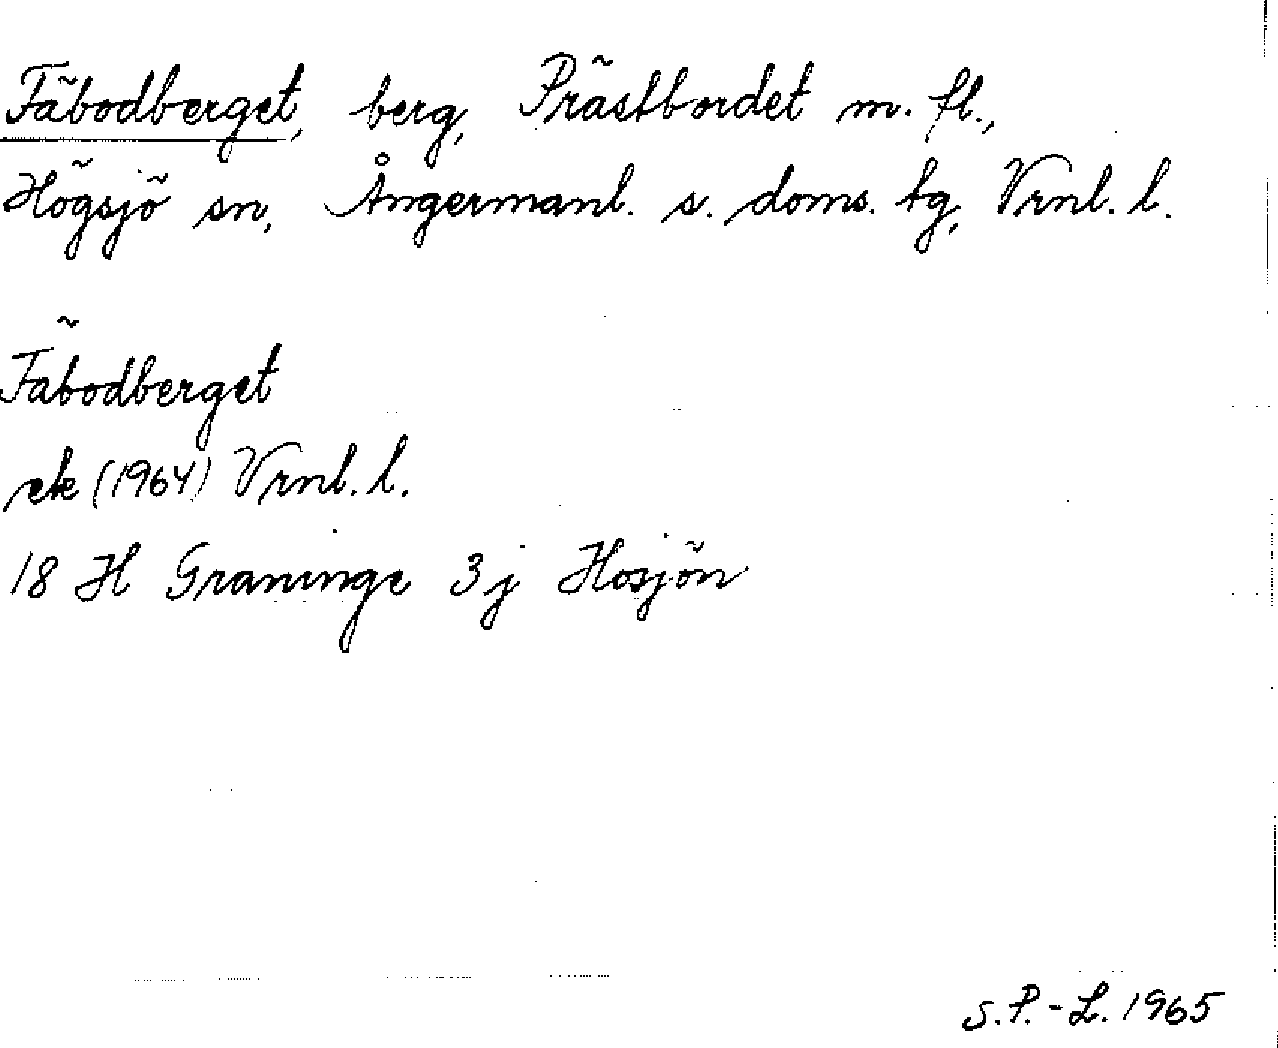 Fäbodberget, berg, Prästbordet m. fl.,
Högsjö sn, Ångermanl. s. doms. tg, Vrnl. l.
Fäbodberget
ek (1964) Vrnl. l.
18 H Graninge 3j Hosjön
S.P.-L. 1965